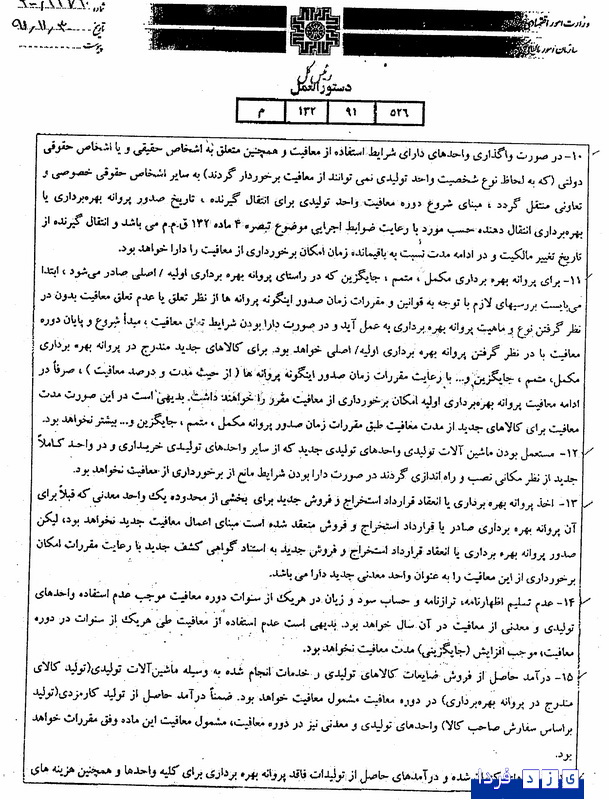 وزارت امور اقتصادی
سازمان امور مالیاتی
شماره
تاریخ ۹۱٫۱۱٫۳۰
پیوست
رئیس کل
دستورالعمل
۵۲۶ ۹۱ ۱۳۲ م
۱۰- در صورت واگذاری واحدهای دارای شرایط استفاده از معافیت و همچنین متعلق به اشخاص حقیقی و یا اشخاص حقوقی
دولتی (که به لحاظ نوع شخصیت واحد تولیدی نمی توانند از معافیت برخوردار گردند) به سایر اشخاص حقوقی خصوصی و
تعاونی منتقل گردد ، مبنای شروع دوره معافیت واحد تولیدی برای انتقال گیرنده ، تاریخ صدور پروانه بهره‌برداری یا
بهره‌برداری انتقال دهنده حسب مورد با رعایت ضوابط اجرایی موضوع تبصره ۴ ماده ۱۳۲ ق.م.م می باشد و انتقال گیرنده از
تاریخ تغییر مالکیت و در ادامه مدت نسبت به باقیمانده زمان امکان برخورداری از معافیت را دارا خواهد بود.
۱۱- برای پروانه بهره برداری مکمل ، متمم ، جایگزین که در راستای پروانه بهره برداری اولیه / اصلی صادر می‌شود ، ابتدا
می‌بایست بررسیهای لازم با توجه به قوانین و مقررات زمان صدور اینگونه پروانه ها از نظر تعلق یا عدم تعلق معافیت بدون در
نظر گرفتن نوع و ماهیت پروانه بهره برداری به عمل آید و در صورت دارا بودن شرایط تعلق معافیت ، مبدأ شروع و پایان دوره
معافیت با در نظر گرفتن پروانه بهره برداری اولیه/ اصلی خواهد بود. برای کالاهای جدید مندرج در پروانه بهره برداری
مکمل، متمم ، جایگزین و... با رعایت مقررات زمان صدور اینگونه پروانه ها ( از حیث مدت و درصد معافیت ) ، صرفاً در
ادامه معافیت پروانه بهره‌برداری اولیه امکان برخورداری از معافیت مقرر را خواهند داشت. بدیهی است در این صورت مدت
معافیت برای کالاهای جدید از مدت معافیت طبق مقررات زمان صدور پروانه مکمل ، متمم ، جایگزین و... بیشتر نخواهد بود.
۱۲- مستعمل بودن ماشین آلات تولیدی واحدهای تولیدی جدید که از سایر واحدهای تولیدی خریداری و در واحد کاملاً
جدید از نظر مکانی نصب و راه اندازی گردند در صورت دارا بودن شرایط مانع از برخورداری از معافیت نخواهد بود.
۱۳- اخذ پروانه بهره برداری یا انعقاد قرارداد استخراج و فروش جدید برای بخشی از محدوده یک واحد معدنی که قبلاً برای
آن پروانه بهره برداری صادر یا قرارداد استخراج و فروش منعقد شده است مبنای اعمال معافیت جدید نخواهد بود، لیکن
صدور پروانه بهره برداری یا انعقاد قرارداد استخراج و فروش جدید به استناد گواهی کشف جدید با رعایت مقررات امکان
برخورداری از این معافیت را به عنوان واحد معدنی جدید دارا می باشد.
۱۴- عدم تسلیم اظهارنامه، ترازنامه و حساب سود و زیان در هریک از سنوات دوره معافیت موجب عدم استفاده واحدهای
تولیدی و معدنی از معافیت در آن سال خواهد بود. بدیهی است عدم استفاده از معافیت طی هریک از سنوات در دوره
معافیت، موجب افزایش (جایگزینی) مدت معافیت نخواهد بود.
۱۵- درآمد حاصل از فروش ضایعات کالاهای تولیدی و خدمات انجام شده به وسیله ماشین‌آلات تولیدی(تولید کالای
مندرج در پروانه بهره‌برداری) در دوره معافیت مشمول معافیت خواهد بود. ضمناً درآمد حاصل از تولید کارمزدی(تولید
براساس سفارش صاحب کالا) واحدهای تولیدی و معدنی نیز در دوره معافیت، مشمول معافیت این ماده وفق مقررات خواهد
بود.
شده و درآمدهای حاصل از تولیدات فاقد پروانه بهره برداری برای کلیه واحدها و همچنین هزینه های
یزد فردا